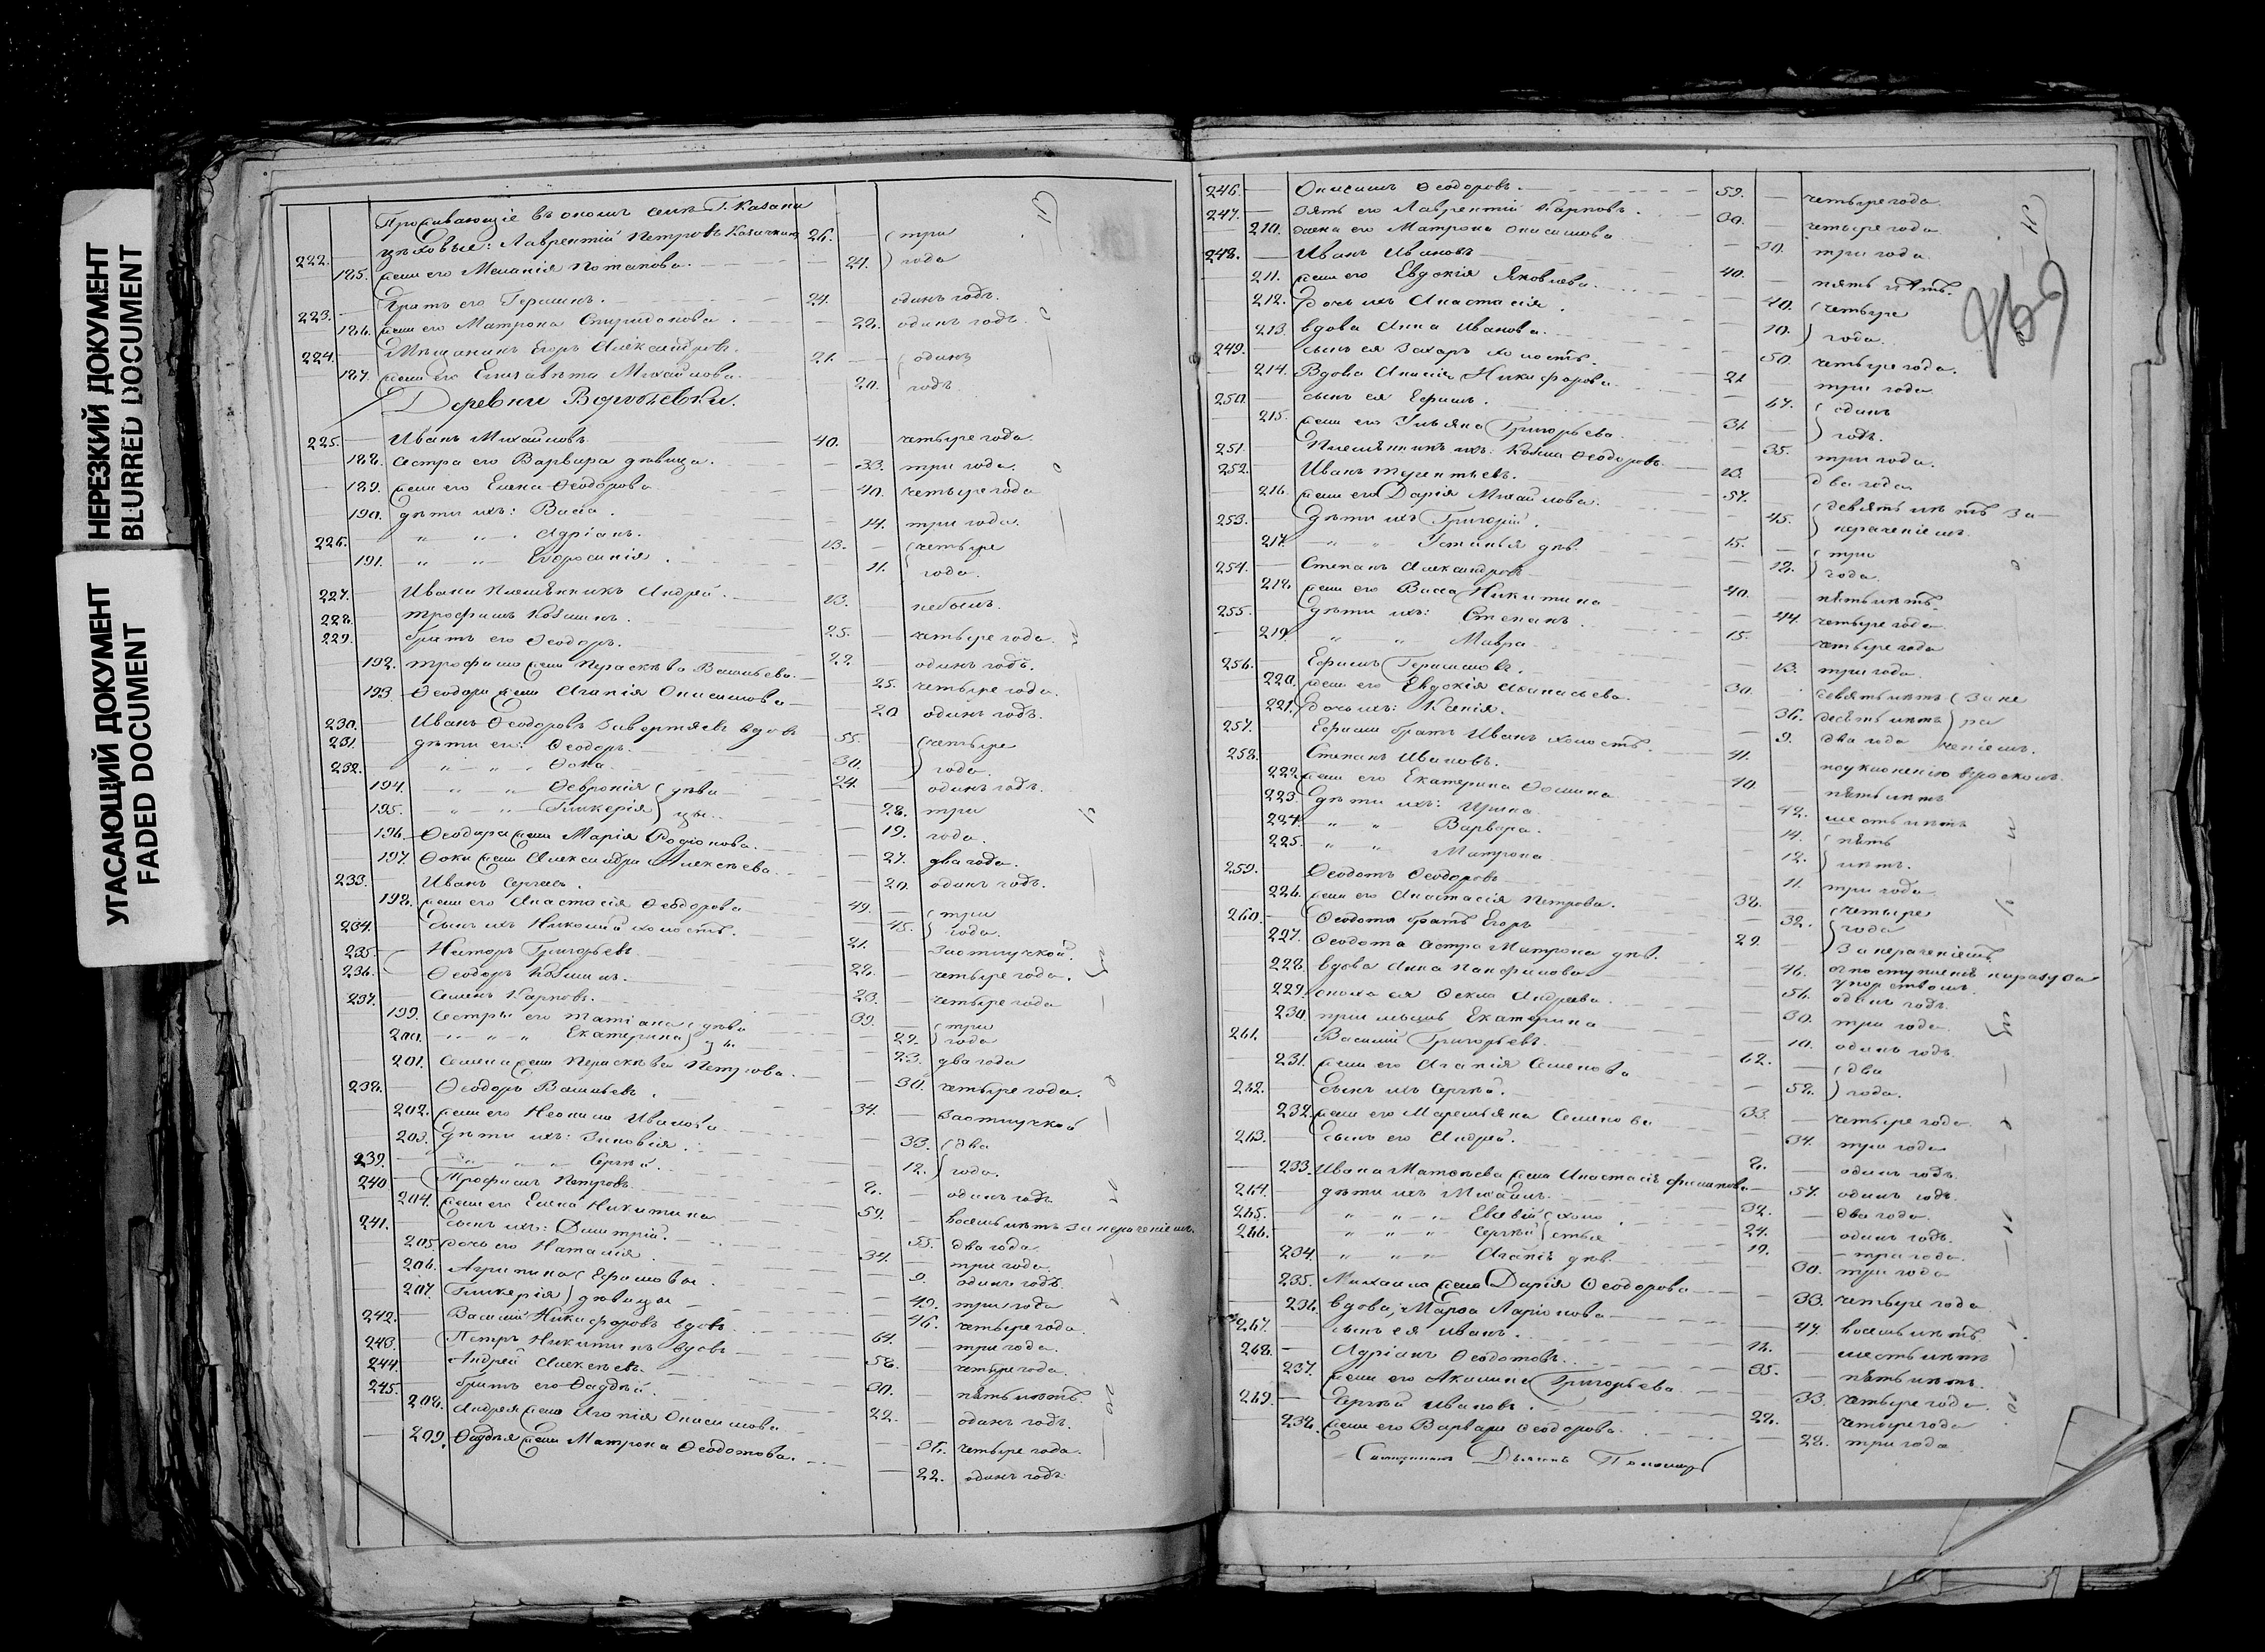 НЕРЕЗКИЙ ДОКУМЕНТ
BLURRED DOCUMENT
УГАСАЮЩИЙ ДОКУМЕНТ
FADED DOCUMENT
Проживающіе въ ономъ селѣ Г. Казани
222. цѣховые: Лаврентій Петровъ 26. три
185. жена его Меланія Потапова. 24. года
223. Братъ его 24. одинъ годъ.
186. жена его Матрона Спиридонова. 22. одинъ годъ.
224. Мѣщанинъ Егоръ Александровъ. 21. одинъ
187. жена его Елизавета Михайлова. 20. годъ.
Деревни
225. Иванъ Михайловъ 40. четыре года.
188. сестра его Варвара дѣвица. 33. три года.
189. жена его Елена Ѳеодорова 40. четыре года
190. дѣти ихъ: Васса. 14. три года.
226. " " Адріанъ. 13. четыре
191. " " Евфросинія. 11. года.
227. Ивана племянникъ Андрей. 13. небылъ.
228. Трофимъ Козминъ. 25. четыре года.
229. братъ его Ѳеодоръ. 22. одинъ годъ.
192. Трофима жена Параскѣва Васильева. 25. четыре года.
193. Ѳеодора жена Агапія Онисимова 20. одинъ годъ.
230. Иванъ Ѳеодоровъ вдовъ 55. четыре
231. дѣти его: Ѳеодоръ. 30. года.
232. " " Ѳока. 24. одинъ годъ.
194. " " Февронія дѣви 28. три
195. " " Гликерія цы. 19. года.
196. Ѳеодора жена Марія Родіонова. 27. два года.
197. Ѳоки жена Александра Алексѣева. 20. одинъ годъ.
233. Иванъ Сергѣевъ. 49. три
198. жена его Анастасія Ѳеодорова 45. года.
234. сынъ ихъ Николай холостъ. 21. За отлучкой.
235. Несторъ Григорьевъ 22. четыре года.
236. Ѳеодоръ Козминъ. 23. четыре года
237. Семенъ Карповъ. 39. три
199. Сестры его Татіана дѣви 22. года
200. " " Екатерина цы. 23. два года
201. Семена жена Параскѣва Петрова. 30. четыре года.
238. Ѳеодоръ Васильевъ. 34. За отлучкой
202. жена его Неонила Иванова 33. два
203. дѣти ихъ: Зиновія. 12. года.
239. " " Сергѣй. 8. одинъ годъ
240. Трофимъ Петровъ 59. восемь лѣтъ за нераченіемъ.
204. жена его Елена Никитина 55. два года
241. сынъ ихъ: Димитрій. 34. три года.
205. дочь его Наталія 9. одинъ годъ
206. Агрипина Ефимовы 49. три года
207. Гликерія дѣвицы 46. четыре года.
242. Василій Никифоровъ вдовъ 64. три года.
243. Петръ Никитинъ вдовъ 58. четыре года.
244. Андрей Алексѣевъ. 30. пять лѣтъ.
245. братъ его Фаддѣй. 22. одинъ годъ.
208. Андрея жена Агапія Онисимова. 36. четыре года.
209. Фаддѣя жена Матрона Ѳеодотова. 22. одинъ годъ
246. Онисимъ Ѳеодоровъ. 59. четыре года.
247. Зять его Лаврентій Карповъ. 30. четыре года.
210. жена его Матрона Онисимова 30. три года.
248. Иванъ Ивановъ 40. пять лѣтъ.
211. жена его Евдокія Яковлева. 40. четыре
212. дочь ихъ Анастасія. 10. года.
213. вдова Анна Иванова. 50. четыре года.
249. сынъ ея Захаръ холостъ. 21 три года
214. Вдова Анисія Никифорова. 67. одинъ
250. сынъ ея Ефимъ. 31. годъ.
215. жена его Ульяна Григорьева. 35. три года.
251. Племянникъ ихъ: Козма Ѳеодоровъ. 13. два года
252. Иванъ Терентьевъ. 57. девять лѣтъ за
216. жена его Дарія Михайлова. 45. нераченіемъ.
253. Дѣти ихъ Григорій. 15. три
217. " " Устинья дѣв. 18. года.
254. Степанъ Александровъ 40. пять лѣтъ.
218. жена его Васса Никитина 44. четыре года.
255. дѣти ихъ: Степанъ. 15. четыре года
219. " " Мавра. 13. три года.
256. Ефимъ Герасимовъ. 30. девять лѣтъ за не
220. жена его Евдокія Аѳанасьева. 36. лѣтъ ра
221. дочь ихъ: Ксенія. 9. два года ченіемъ.
257. Ефима братъ Иванъ холостъ. 41.
258. Степанъ Ивановъ. 40. пять лѣтъ
222. жена его Екатерина Ѳомина 42. шесть лѣтъ
223. дѣти ихъ: Ирина 14. пять
224. " " Варвара. 12. лѣтъ.
225. " " Матрона. 11. три года
259. Ѳеодотъ Ѳеодоровъ 38. четыре
226. жена его Анастасія Петрова. 32. года
260. Ѳеодота братъ Егоръ 29. За нераченіемъ
227. Ѳеодота сестра Матрона дѣв. 46.
228. вдова Анна Панфилова 56. одинъ годъ.
229. сноха ея Ѳекла Андреева. 30. три года.
230. пріемышъ Екатерина 10. одинъ годъ
261. Василій Григорьевъ. 62. два
231. жена его Агапія Семенова 58. года.
262. сынъ ихъ Сергѣй. 33. четыре года.
232. жена его Маремьяна Семенова 34. три года
263. сынъ его Андрей. 8. одинъ годъ.
233. Ивана Матвѣева жена Анастасія Филипова 57. одинъ годъ.
264. дѣти ихъ Михаилъ. 32. два года.
265. " " холо 24. одинъ годъ.
266. " " Сергѣй стые 19. три года.
234. " " Агапія дѣв. 30. три года
235. Михаила жена Дарія Ѳеодорова 33. четыре года
236. вдова, Марѳа Ларіонова 47. восемь лѣтъ
267. сынъ ея Иванъ. 14. шесть лѣтъ
268. Адріанъ Ѳеодотовъ. 35. пять лѣтъ.
237. жена его Акилина Григорьева 33. четыре года.
269. Сергѣй Ивановъ. 28. четыре года
238. жена его Варвара Ѳеодорова. 28. три года
Священникъ Дьяконъ Пономарь